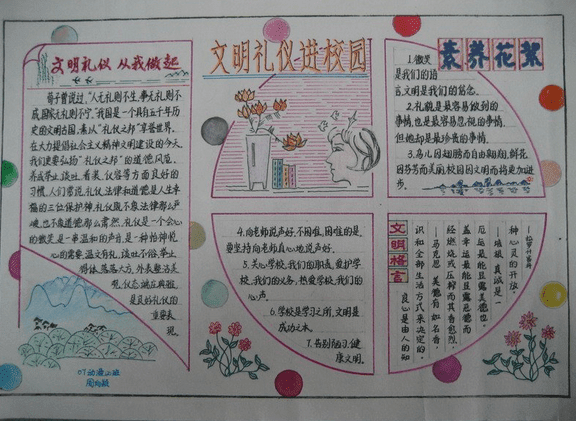 文明礼仪 从我做起
荀子曾说过,“人无礼则不生,事无礼则不
成,国家无礼则不宁。”我国是一个具有五千年历
史的文明古国,素以“礼仪之邦”享誉世界。
在大力提倡社会主义精神文明建设的今天,
我们更要弘扬“礼仪之邦”的道德风范、
养成举止、谈吐、着装、仪容等方面良好的
习惯。人们常说,礼仪、法律和道德是人生幸
福的三位保护神,礼仪既不象法律那么严
峻,也不象道德那么肃然。礼仪是一个会心
的微笑,是一串温和的声音,是一种怡神悦
心的需要。温文有礼、谈吐不俗、举止
得体、落落大方、外表整洁美
观、仪态端庄典雅,
是良好礼仪的
重要表
现。
07动漫二班
文明礼仪进校园
素养花絮
1.微笑
是我们的语
言,文明是我们的信念。
2.礼貌是最容易做到的
事情,也是最容易忽视的事情,
但她却是最珍贵的事情。
3.鸟儿因翅膀而自由翱翔,鲜花
因芬芳而美丽,校园因文明而将更加进
步。
4.向老师说声好,不困难,困难的是
要坚持向老师真心地说声好。
5.关心学校,我们的职责,爱护学
校,我们的义务,热爱学校,我们的
心声。
6.学校是学习之所,文明是
成功之本。
7.告别陋习,健
康文明。
文明格言
种心灵的开放。
——培根 真诚是一
厄运最能显露美德也。
盖幸运最能显露恶德而
经燃烧或压榨而其香愈烈,
——马克思 美德有如名香,
识和全部生活方式来决定的。
良心是由人的知